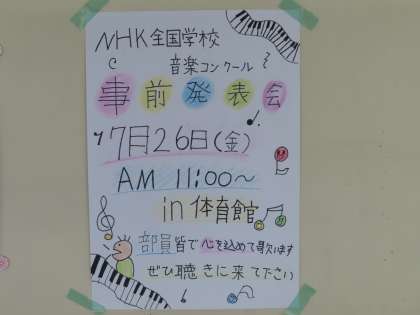 NHK全国学校
音楽コンクール
事前発表会
7月26日(金)
AM 11:00〜
in 体育館
部員皆で心を込めて歌います
ぜひ聴きに来て下さい